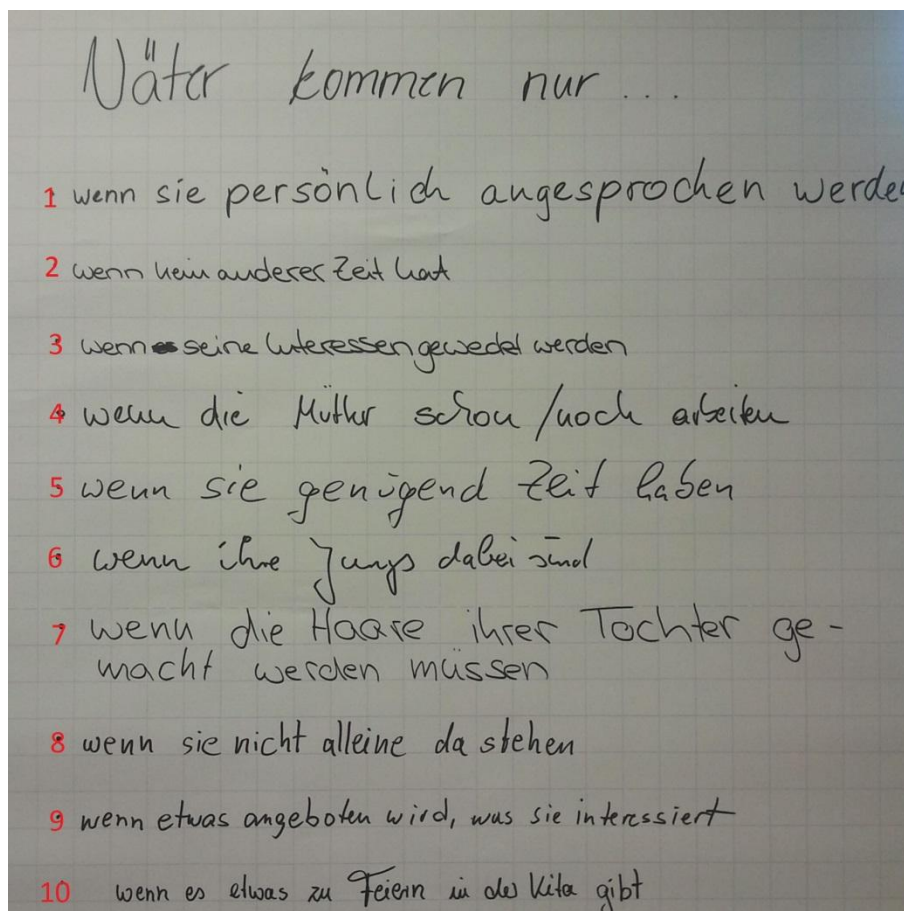 Väter kommen nur ...
1 wenn sie persönlich angesprochen werde
2 wenn kein anderer Zeit hat
3 wenn seine Interessen geweckt werden
4 wenn die Mütter schon / noch arbeiten
5 wenn sie genügend Zeit haben
6 wenn ihre Jungs dabei sind
7 wenn die Haare ihrer Tochter ge-
macht werden müssen
8 wenn sie nicht alleine da stehen
9 wenn etwas angeboten wird, was sie interessiert
10 wenn es etwas zu Feiern in der Kita gibt